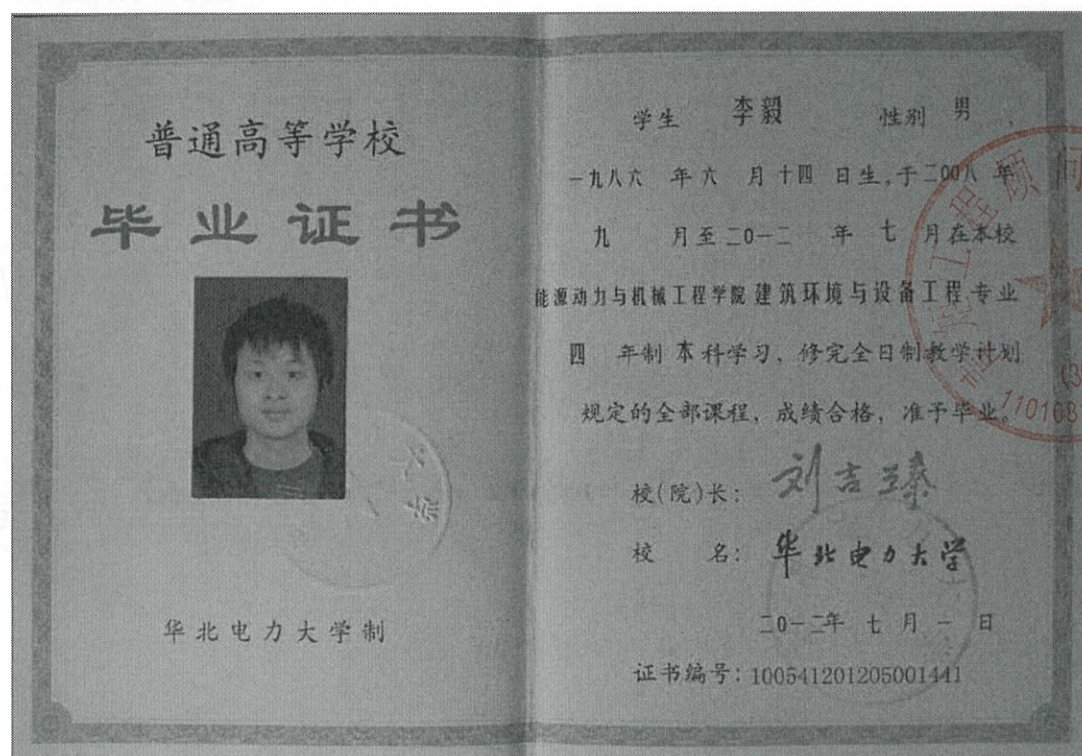 普通高等学校
毕业证书
华北电力大学制
学生 李毅 性别 男,
一九八六 年 六 月 十四 日生,于二00八 年
九 月至 二0一二 年 七 月在本校
能源动力与机械工程学院 建筑环境与设备工程 专业
四 年制 本 科学习,修完全日制教学计划
规定的全部课程,成绩合格,准予毕业。
校(院)长: 刘吉臻
校 名: 华北电力大学
二0一二年 七 月 一 日
证书编号:100541201205001441
工程顾问
110108
大学